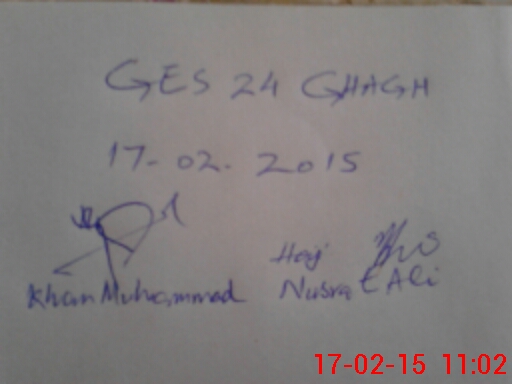 GES 24 GHAGH
17-02.2015
Haji
Khan Muhammad Nusrat Ali
17-02-15 11:02